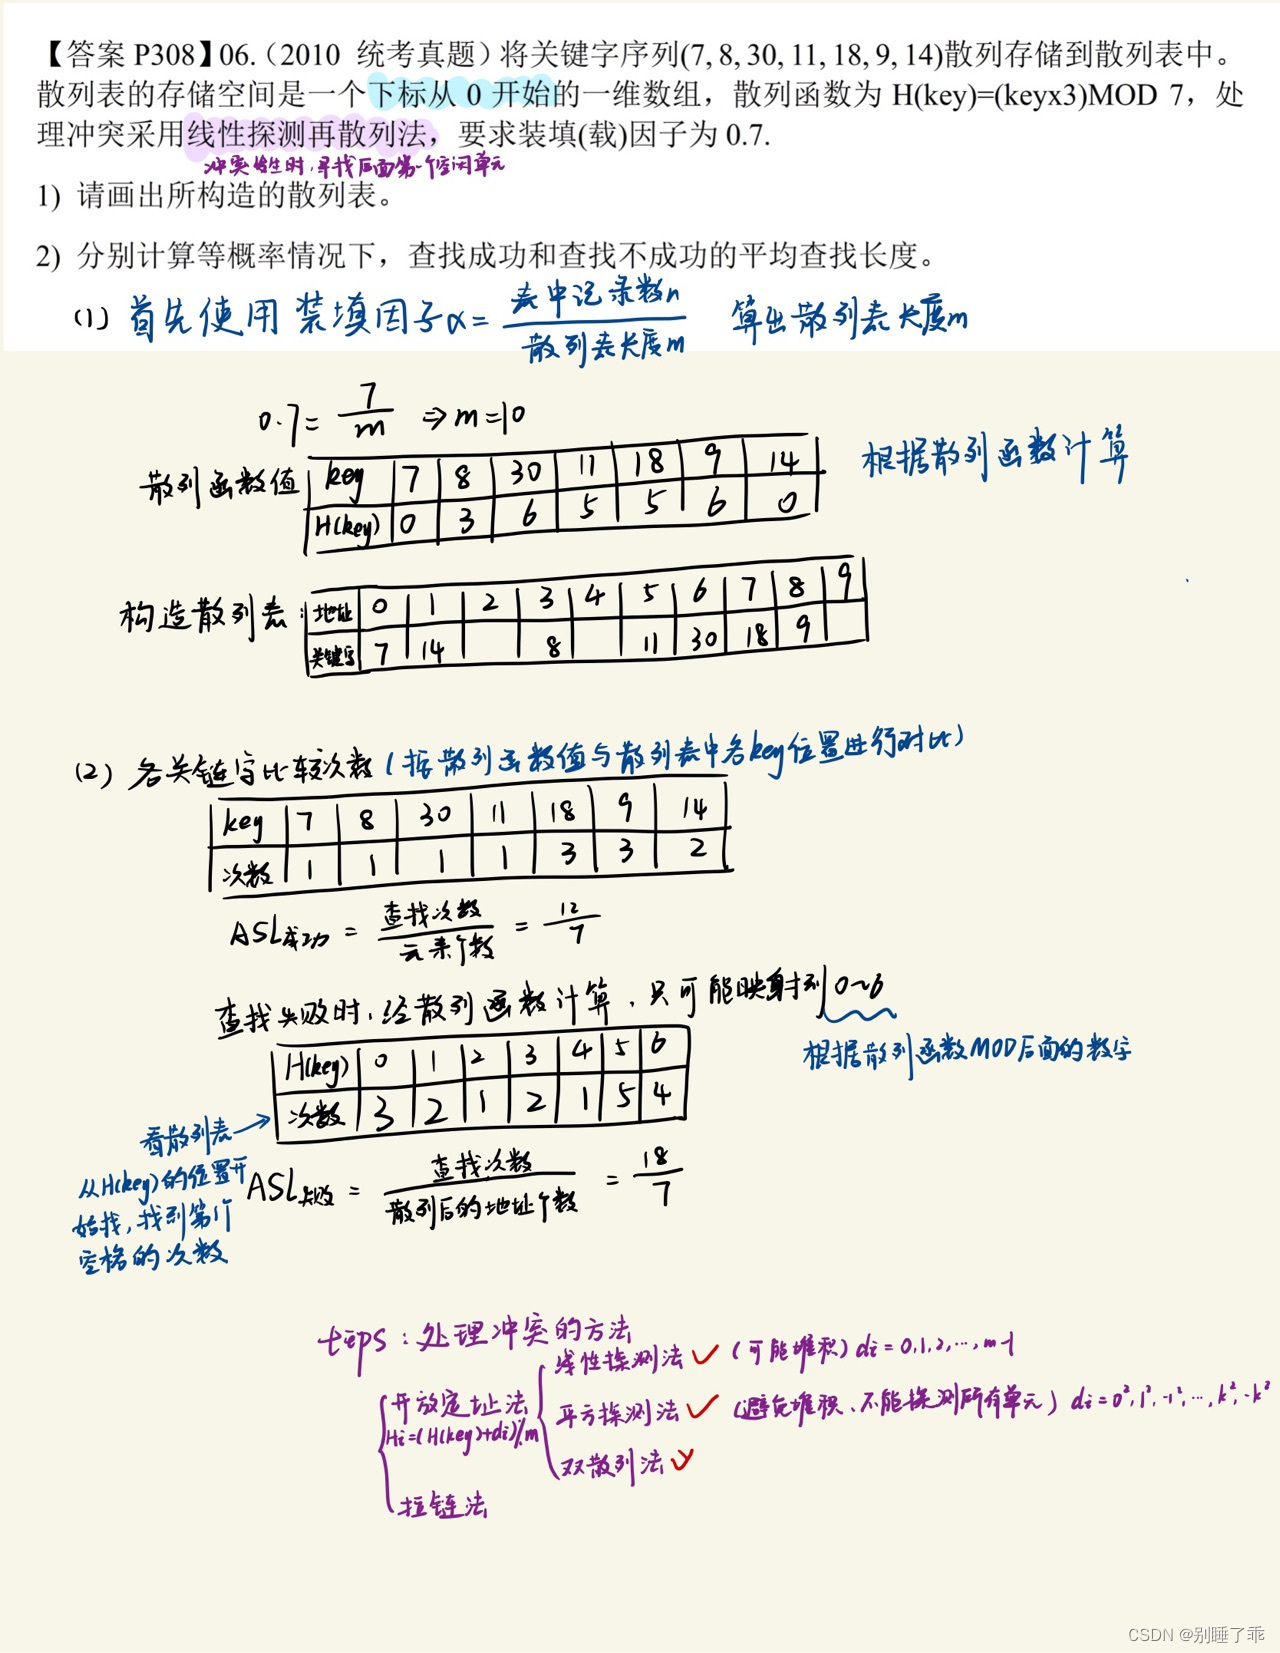 【答案 P308】06.（2010 统考真题）将关键字序列(7, 8, 30, 11, 18, 9, 14)散列存储到散列表中。
散列表的存储空间是一个下标从 0 开始的一维数组，散列函数为 H(key)=(keyx3)MOD 7，处
理冲突采用线性探测再散列法，要求装填(载)因子为 0.7.
冲突发生时，寻找后面第一个空闲单元
1) 请画出所构造的散列表。
2) 分别计算等概率情况下，查找成功和查找不成功的平均查找长度。
(1) 首先使用装填因子α= 表中记录数n / 散列表长度m 算出散列表长度m
0.7= 7/m ⇒m=10
散列函数值 key 7 8 30 11 18 9 14 根据散列函数计算
H(key) 0 3 6 5 5 6 0
构造散列表: 地址 0 1 2 3 4 5 6 7 8 9
关键字 7 14 8 11 30 18 9
(2) 各关键字比较次数 (按散列函数值与散列表中各key位置进行对比)
key 7 8 30 11 18 9 14
次数 1 1 1 1 3 3 2
ASL成功 = 查找次数/元素个数 = 12/7
查找失败时，经散列函数计算，只可能映射到0~6
根据散列函数MOD后面的数字
H(key) 0 1 2 3 4 5 6
次数 3 2 1 2 1 5 4
看散列表→
从H(key)的位置开
始找，找到第1个
空格的次数
ASL失败 = 查找次数/散列后的地址个数 = 18/7
teps：处理冲突的方法
线性探测法 ✓ (可能堆积) di=0,1,2,…,m-1
开放定址法
Hi=(H(key)+di)%m
平方探测法 ✓ (避免堆积、不能探测所有单元) di=0²,1²,-1²,…,k²,-k²
双散列法 ✓
拉链法
CSDN @别睡了乖